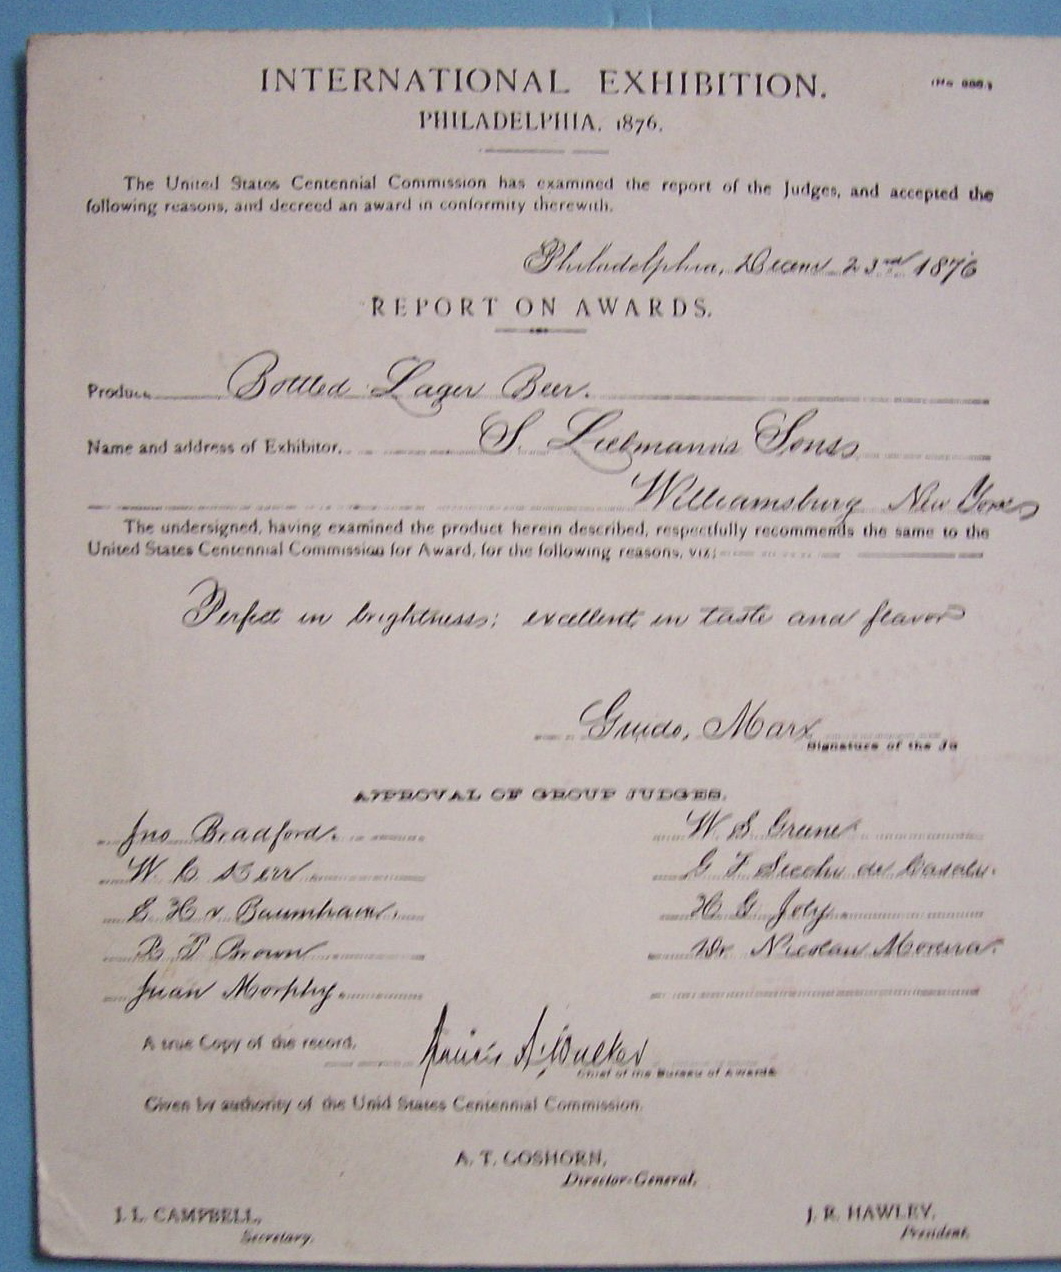 INTERNATIONAL EXHIBITION.
PHILADELPHIA, 1876.
The United States Centennial Commission has examined the report of the Judges, and accepted the
following reasons, and decreed an award in conformity therewith.
Philadelphia, 23rd 1876
REPORT ON AWARDS.
Bottled Lager Beer.
Name and address of Exhibitor. S. Liebmanns Sons
Williamsburg New York
The undersigned, having examined the product herein described, respectfully recommends the same to the
United States Centennial Commission for Award, for the following reasons, viz:
Perfect in brightness; excellent in taste and flavor
Guido, Marx
Signature of the
APPROVAL OF GROUP JUDGES.
Jno Bradford. W S Greene
W C Kerr G F
E H v Baumhauer. H G Joly
Brown Dr Nicolau Moreira.
Juan Morphy.
A true Copy of the record. Francis A. Walker
Chief of the Bureau of Awards
Given by authority of the Unid States Centennial Commission.
A. T. GOSHORN,
Director-General.
J. L. CAMPBELL, J. R. HAWLEY,
Secretary. President.